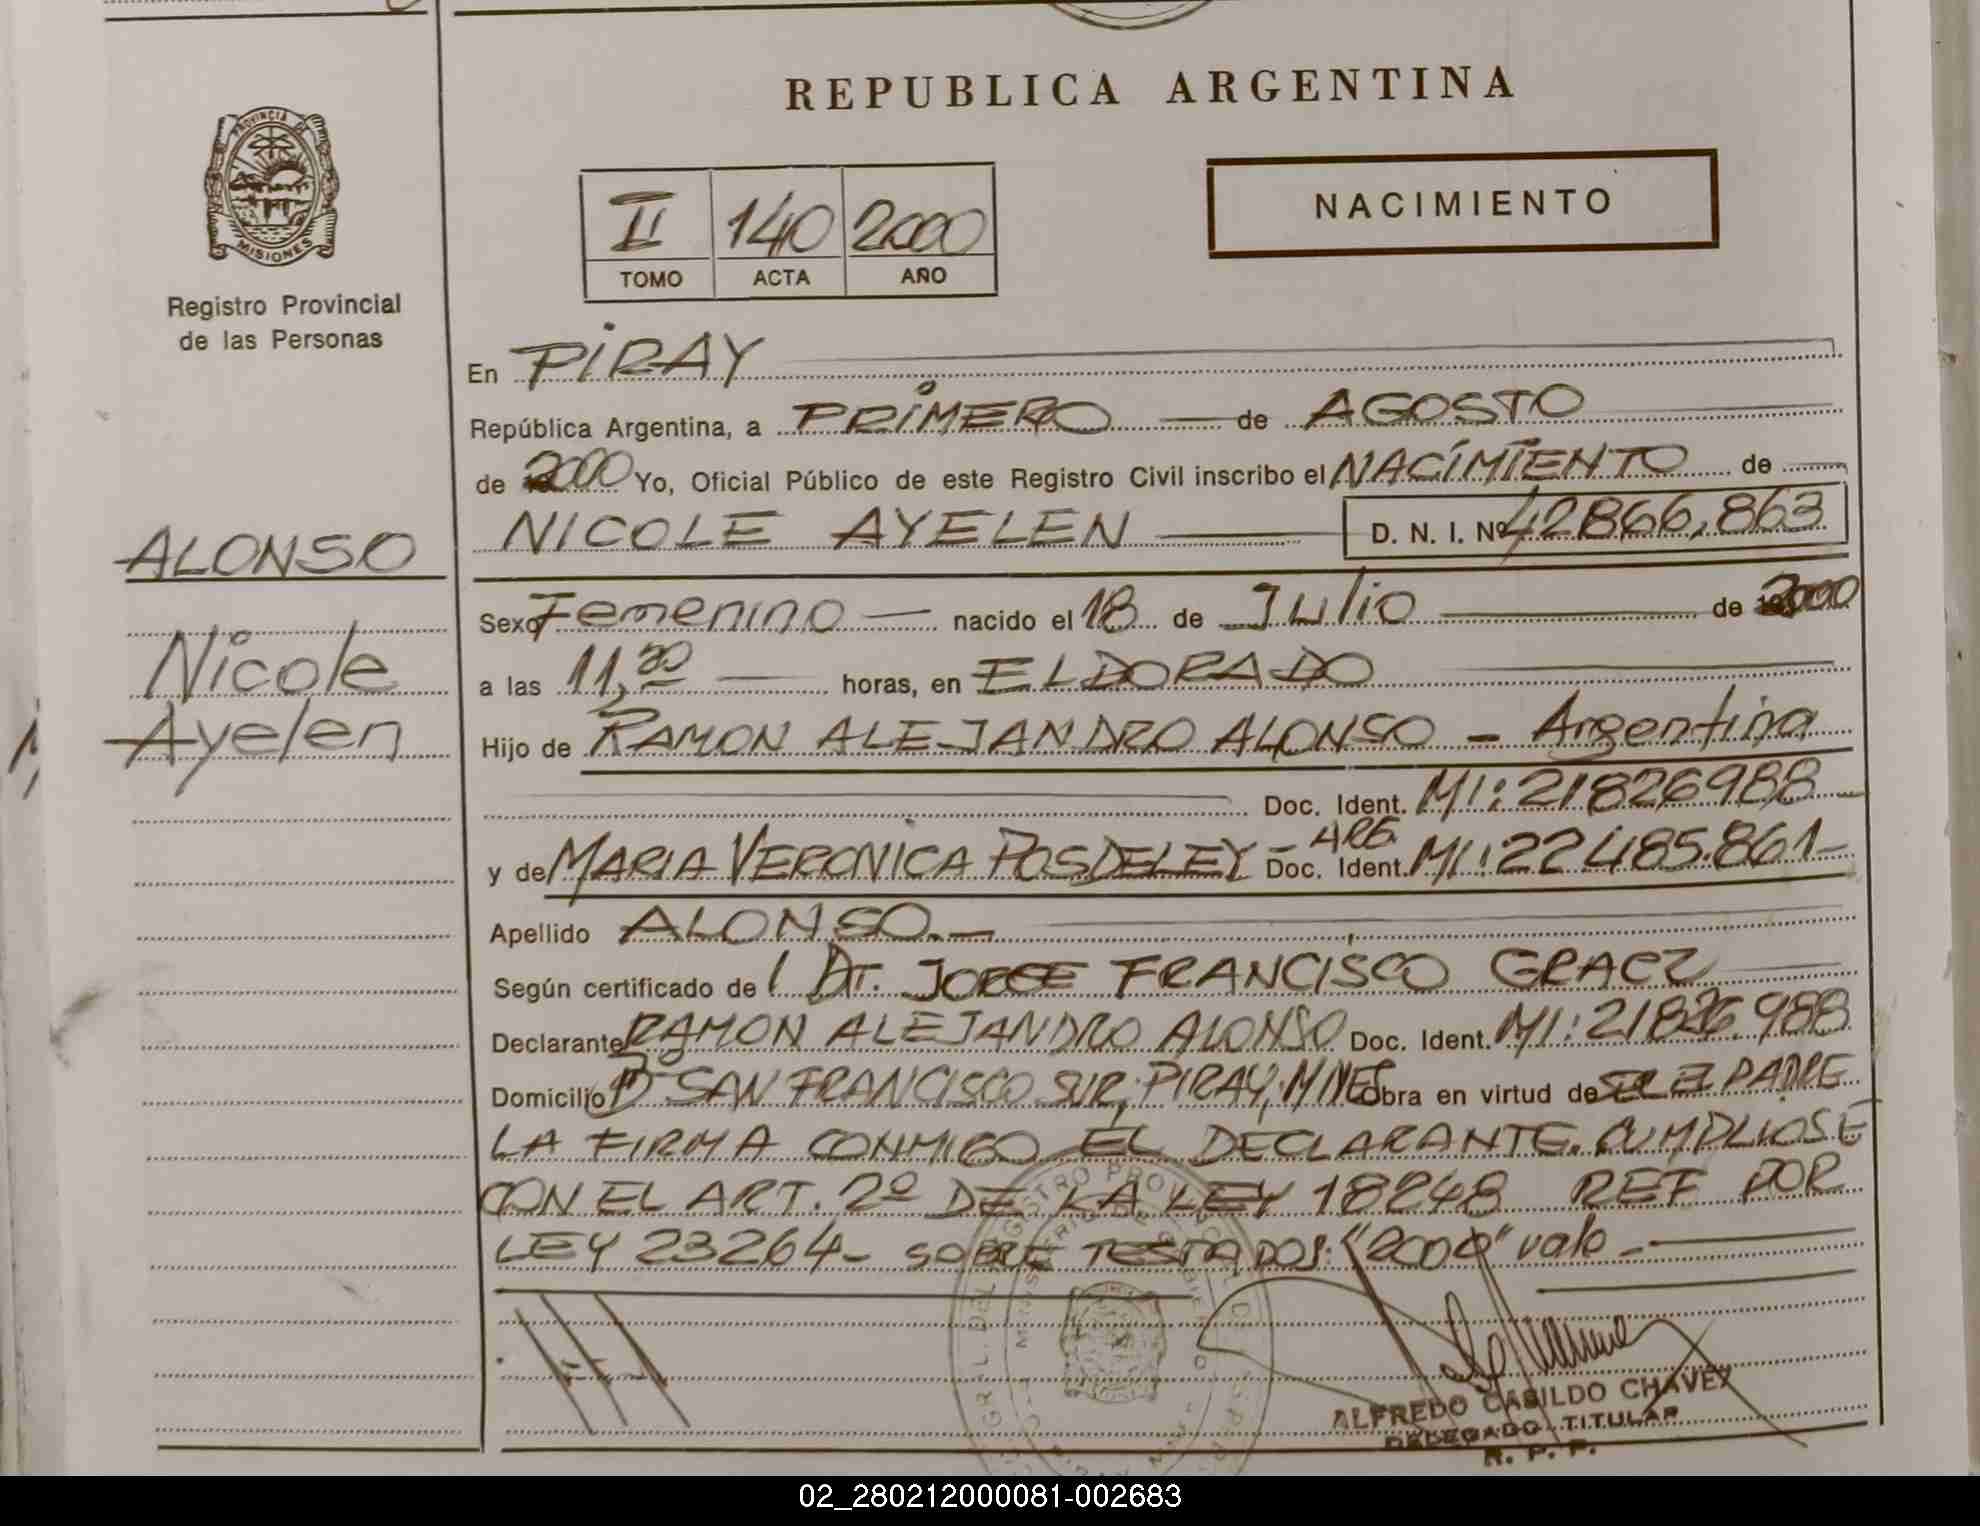 REPUBLICA ARGENTINA
PROVINCIA DE
MISIONES
Registro Provincial
de las Personas
II 140 2000
TOMO ACTA AÑO
NACIMIENTO
En PIRAY
República Argentina, a PRIMERO de AGOSTO
de 2000 Yo, Oficial Público de este Registro Civil inscribo el NACIMIENTO de
NICOLE AYELEN D. N. I. Nº 42866,863
ALONSO
Nicole
Ayelen
Sexo Femenino — nacido el 18 de Julio de 2000
a las 11,20 horas, en ELDORADO
Hijo de RAMON ALEJANDRO ALONSO - Argentina
Doc. Ident. MI: 21826988-
y de MARIA VERONICA POSDELEY - ARG. Doc. Ident. MI: 22485.861-
Apellido ALONSO.-
Según certificado de DT. JORGE FRANCISCO
Declarante RAMON ALEJANDRO ALONSO Doc. Ident. MI: 21826.988
Domicilio Bº SAN FRANCISCO SUR, PIRAY, MNES Obra en virtud de SER EL PADRE
LA FIRMA CONMIGO EL DECLARANTE. CUMPLIOSE
CON EL ART. 2º DE LA LEY 18248 REF POR
LEY 23264- SOBRE TESTADOS: "2000" vale -
ALFREDO CASILDO CHAVEZ
DELEGADO TITULAR
R. P. P.
02_280212000081-002683